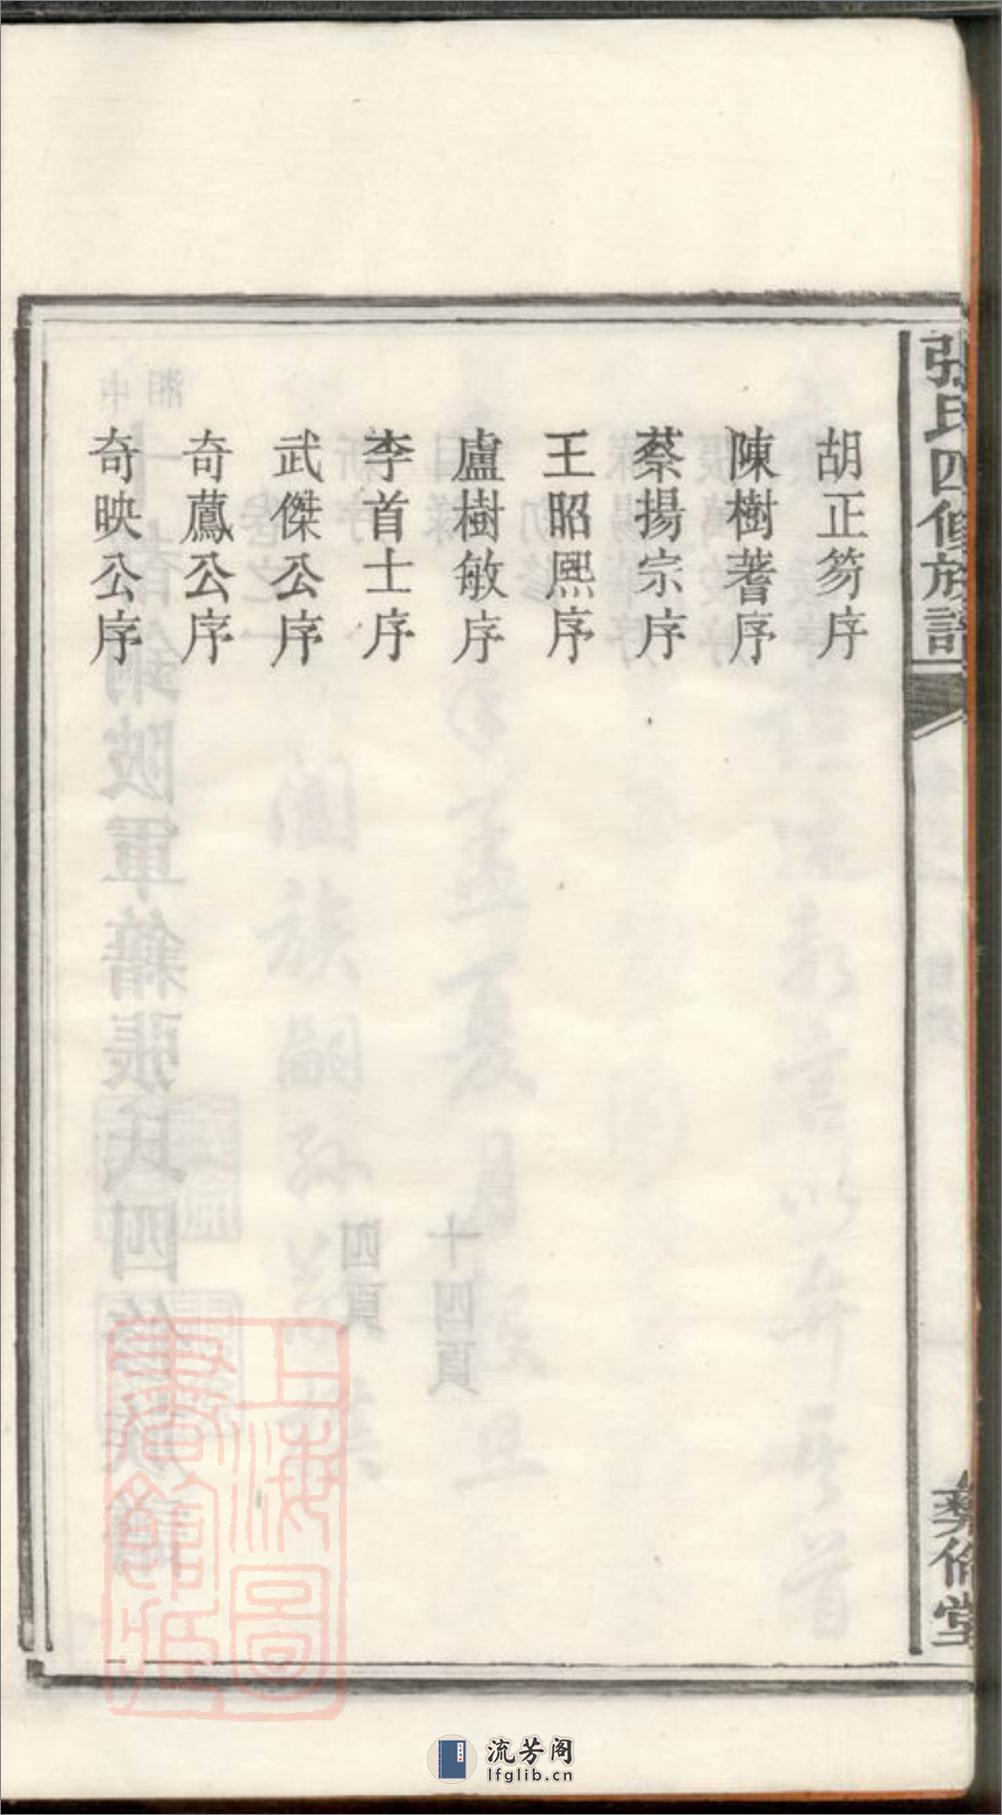 張氏四修族譜
彝倫堂
胡正笏序
陳樹蓍序
蔡揚宗序
王昭熙序
盧樹敏序
李首士序
武傑公序
奇薦公序
奇映公序
上海圖書館藏
流芳阁
lfglib.cn